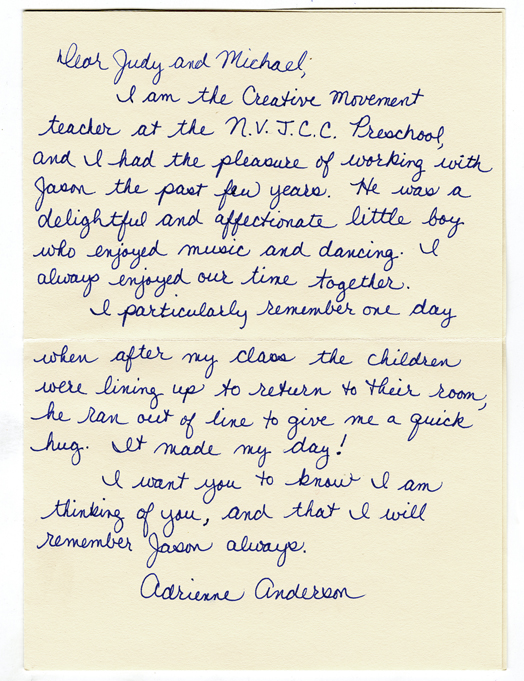 Dear Judy and Michael,
I am the Creative Movement
teacher at the N.V.J.C.C. Preschool,
and I had the pleasure of working with
Jason the past few years. He was a
delightful and affectionate little boy
who enjoyed music and dancing. I
always enjoyed our time together.
I particularly remember one day
when after my class the children
were lining up to return to their room,
he ran out of line to give me a quick
hug. It made my day!
I want you to know I am
thinking of you, and that I will
remember Jason always.
Adrienne Anderson